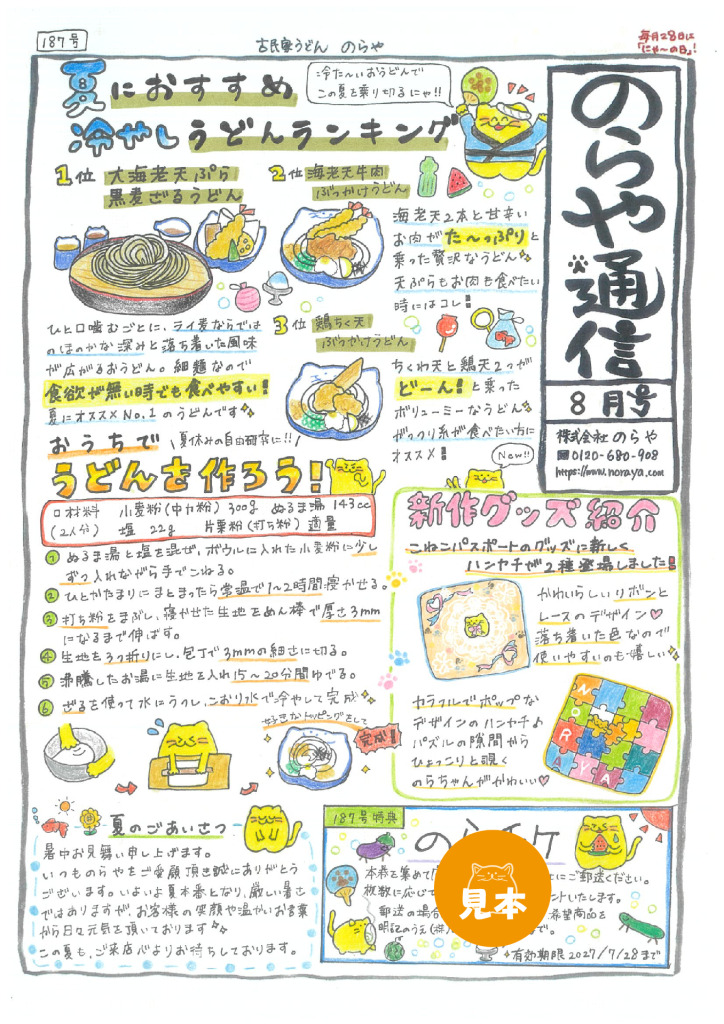 187号
古民家うどん のらや
毎月28日に
「にゃ〜の日」!
夏におすすめ
冷やしうどんランキング
冷た〜いおうどんで
この夏を乗り切るにゃ!!
のらや通信
8月号
株式会社 のらや
0120-680-908
https://www.noraya.com
1位 大海老天ぷら
黒麦ざるうどん
ひと口噛むごとに、ライ麦ならでは
のほのかな深みと落ち着いた風味
が広がるおうどん。細麺なので
食欲が無い時でも食べやすい!
夏にオススメNo.1のうどんです
2位 海老天牛肉
ぶっかけうどん
海老天2本と甘辛い
お肉がた〜っぷりと
乗った贅沢なうどん
天ぷらもお肉も食べたい
時にはコレ!
3位 鶏ちく天
ぶっかけうどん
ちくわ天と鶏天2つが
どーん!と乗った
ボリューミーなうどん
がっつり系が食べたい方に
オススメ!
おうちで
夏休みの自由研究に!!
うどんを作ろう!
材料 小麦粉(中力粉)300g ぬるま湯 143cc
(2人分) 塩 22g 片栗粉(打ち粉)適量
① ぬるま湯と塩を混ぜ、ボウルに入れた小麦粉に少し
ずつ入れながら手でこねる。
② ひとかたまりにまとまったら常温で1〜2時間寝かせる。
③ 打ち粉をまぶし、寝かせた生地をめん棒で厚さ3mm
になるまで伸ばす。
④ 生地を3つ折りにし、包丁で3mmの細さに切る。
⑤ 沸騰したお湯に生地を入れ15〜20分間ゆでる。
⑥ ざるを使って水にうつし、こおり水で冷やして完成
好きなトッピングをして
完成!
New!!
新作グッズ紹介
こねこパスポートのグッズに新しく
ハンヤチが2種登場しました!
かわいらしいリボンと
レースのデザイン♡
落ち着いた色なので
使いやすいのも嬉しい
カラフルでポップな
デザインのハンヤチ♪
パズルの隙間から
ひょっこりと覗く
のらちゃんがかわいい♡
NORAYA
夏のごあいさつ
暑中お見舞い申し上げます。
いつものらやをご愛顧頂き誠にありがとう
ございます。いよいよ夏本番となり、厳しい暑さ
ではありますが、お客様の笑顔や温かいお言葉
から日々元気を頂いております
この夏も、ご来店心よりお待ちしております。
187号特典
のらチケ
本券を集めて「
にご郵送ください。
枚数に応じて
ントいたします。
郵送の場合
希望商品を
明記のうえ(株)
で。
見本
有効期限2027/7/28まで